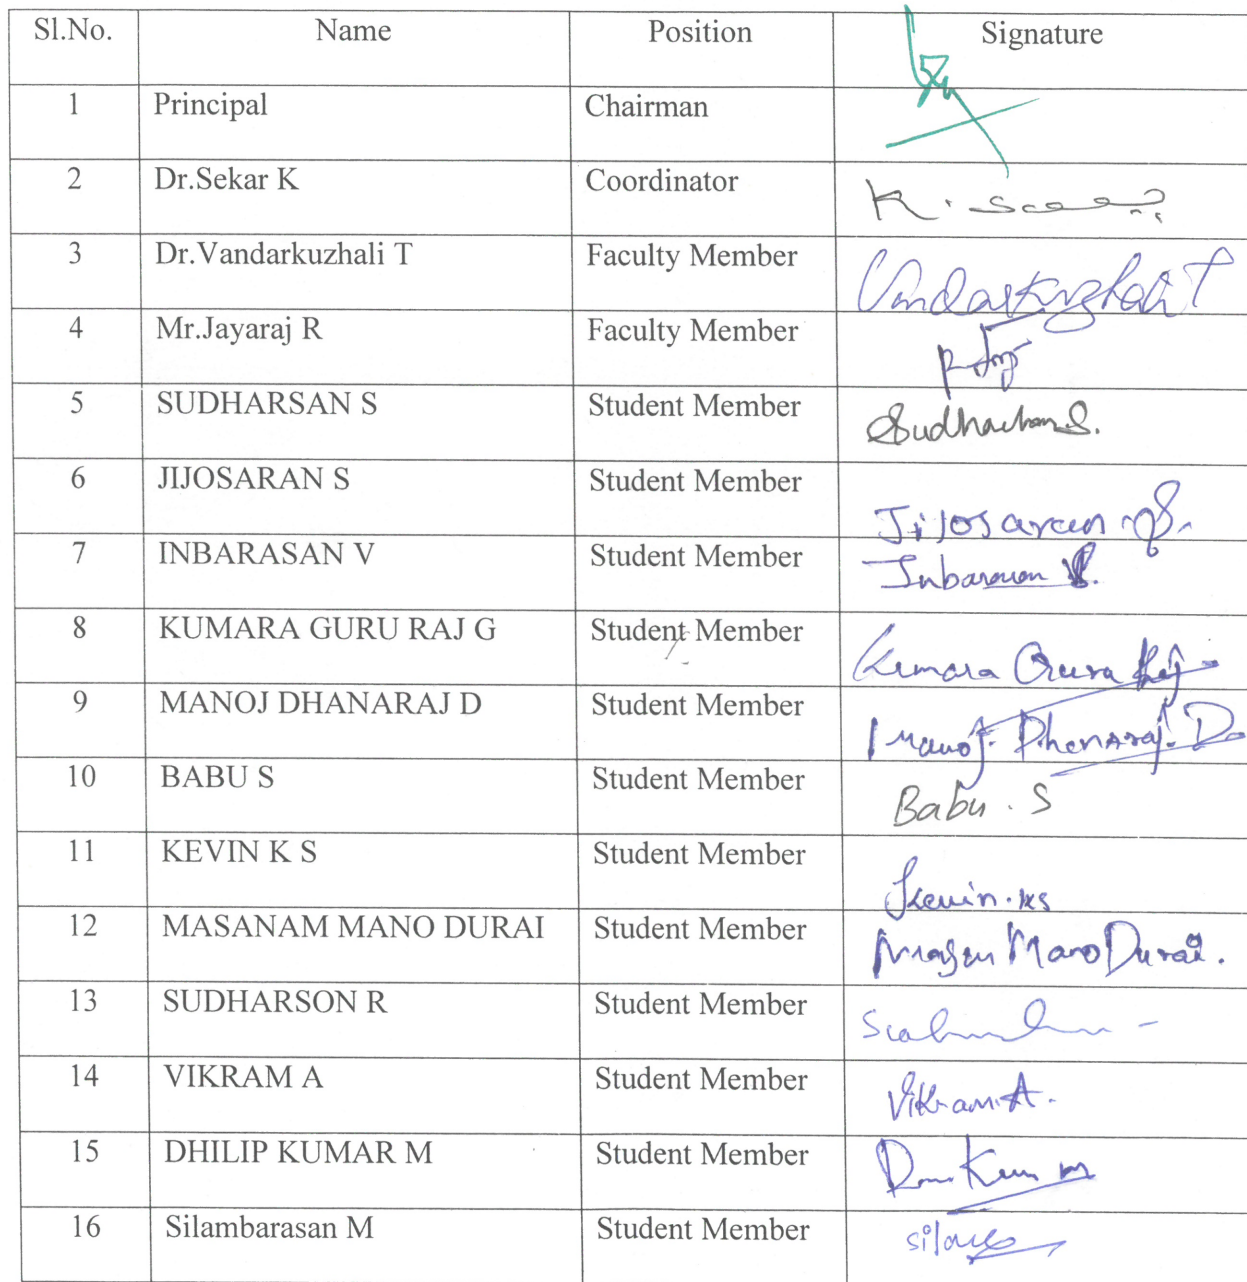 Sl.No. Name Position Signature
1 Principal Chairman
2 Dr.Sekar K Coordinator K.
3 Dr.Vandarkuzhali T Faculty Member Vandarkuzhali T
4 Mr.Jayaraj R Faculty Member
5 SUDHARSAN S Student Member Sudharsan S.
6 JIJOSARAN S Student Member Jijosaran S.
7 INBARASAN V Student Member Inbarasan V.
8 KUMARA GURU RAJ G Student Member Kumara Guru Raj
9 MANOJ DHANARAJ D Student Member Manoj. Dhanaraj. D
10 BABU S Student Member Babu . S
11 KEVIN K S Student Member Kevin.KS
12 MASANAM MANO DURAI Student Member Mano Durai.
13 SUDHARSON R Student Member
14 VIKRAM A Student Member Vikram.A.
15 DHILIP KUMAR M Student Member
16 Silambarasan M Student Member